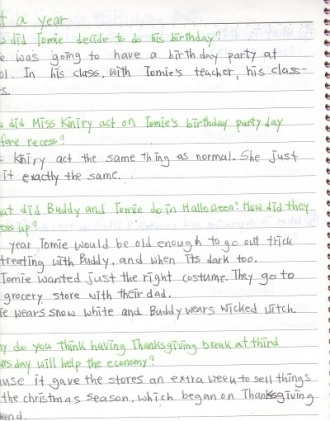 t a year
did Tomie decide to do his birthday?
e was going to have a birthday party at
ol. In his class, with Tomie's teacher, his class-
s.
did Miss Kiniry act on Tomie's birthday party day
fore recess?
s Kniry act the same thing as normal. She just
it exactly the same.
at did Buddy and Tomie do in Halloween? How did they
ess up?
year Tomie would be old enough to go out trick
treating with Buddy, and when its dark too.
Tomie wanted just the right costume. They go to
grocery store with their dad.
ie wears snow white and Buddy wears wicked witch.
hy do you think having Thanksgiving break at third
urs day will help the economy?
use it gave the stores an extra week to sell things
the christmas season, which began on Thanksgiving
kend.